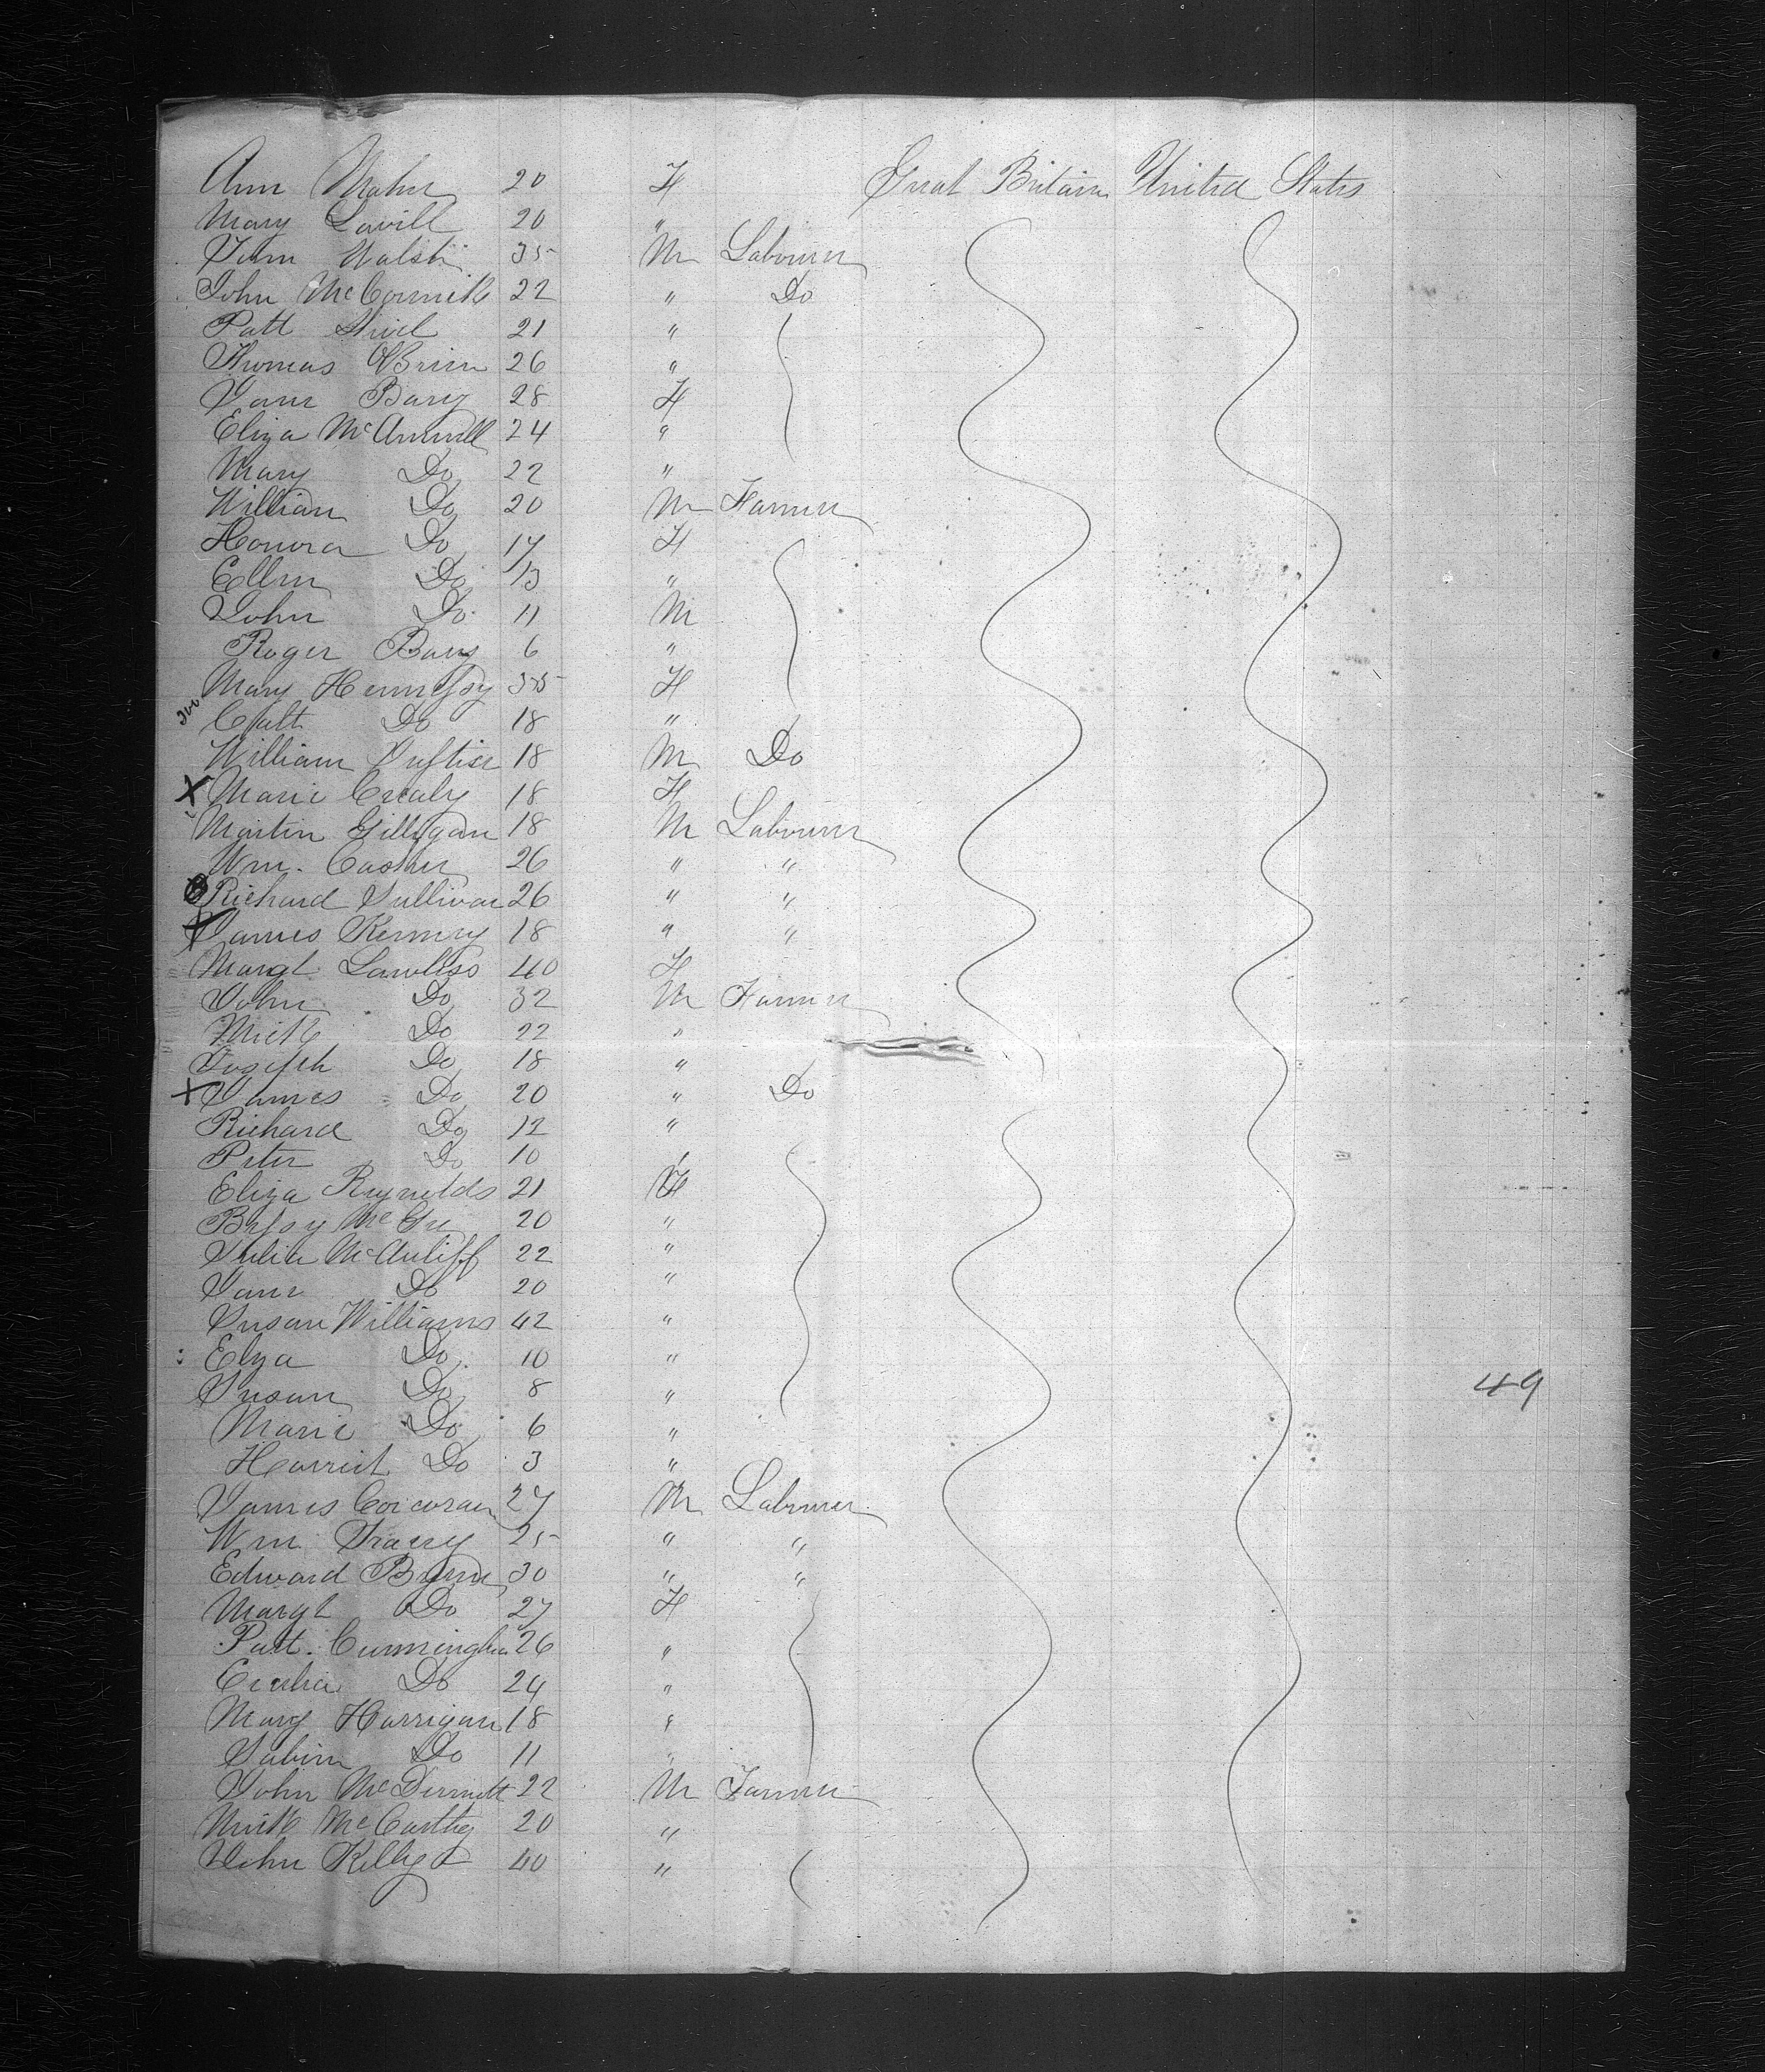 Ann Maher 20 F Great Britain United States
Mary Lavill 20 "
Tom Walsh 35 M Labourer
John McCormick 22 " Do
Patt 21 "
Thomas O'Brien 26 "
Jane Barry 28 F
Eliza McAnnull 24 "
Mary Do 22 "
William Do 20 M Farmer
Honora Do 17 F
Ellen Do 13 "
John Do 11 M
Roger Barry 6 "
Mary Hennessy 35 F
Cath Do 18 "
William 18 M Do
X Maria Crealy 18 F
Martin Gilligan 18 M Labourer
Wm. Casher 26 " "
Richard Sullivan 26 " "
X James Kenney 18 " "
Margt Lawless 40 F
John Do 32 M Farmer
Mick Do 22 "
Joseph Do 18 "
X James Do 20 " Do
Richard Do 12 "
Peter Do 10 "
Eliza Reynolds 21 F
Bessy McGee 20 "
Julia McAuliff 22 "
Jane Do 20 "
Susan Williams 42 "
Elza Do 10 "
Susan Do 8 " 49
Maria Do 6 "
Harriet Do 3 "
James Corcoran 27 M Labourer
Wm Tracey 25 " "
Edward Byrne 30 " "
Margt Do 27 F
Patt. Cunningham 26 "
Cecelia Do 24 "
Mary Harrigan 18 "
Sabina Do 11 "
John McDermott 22 M Farmer
Mick McCarthy 20 "
John Kelly 40 "